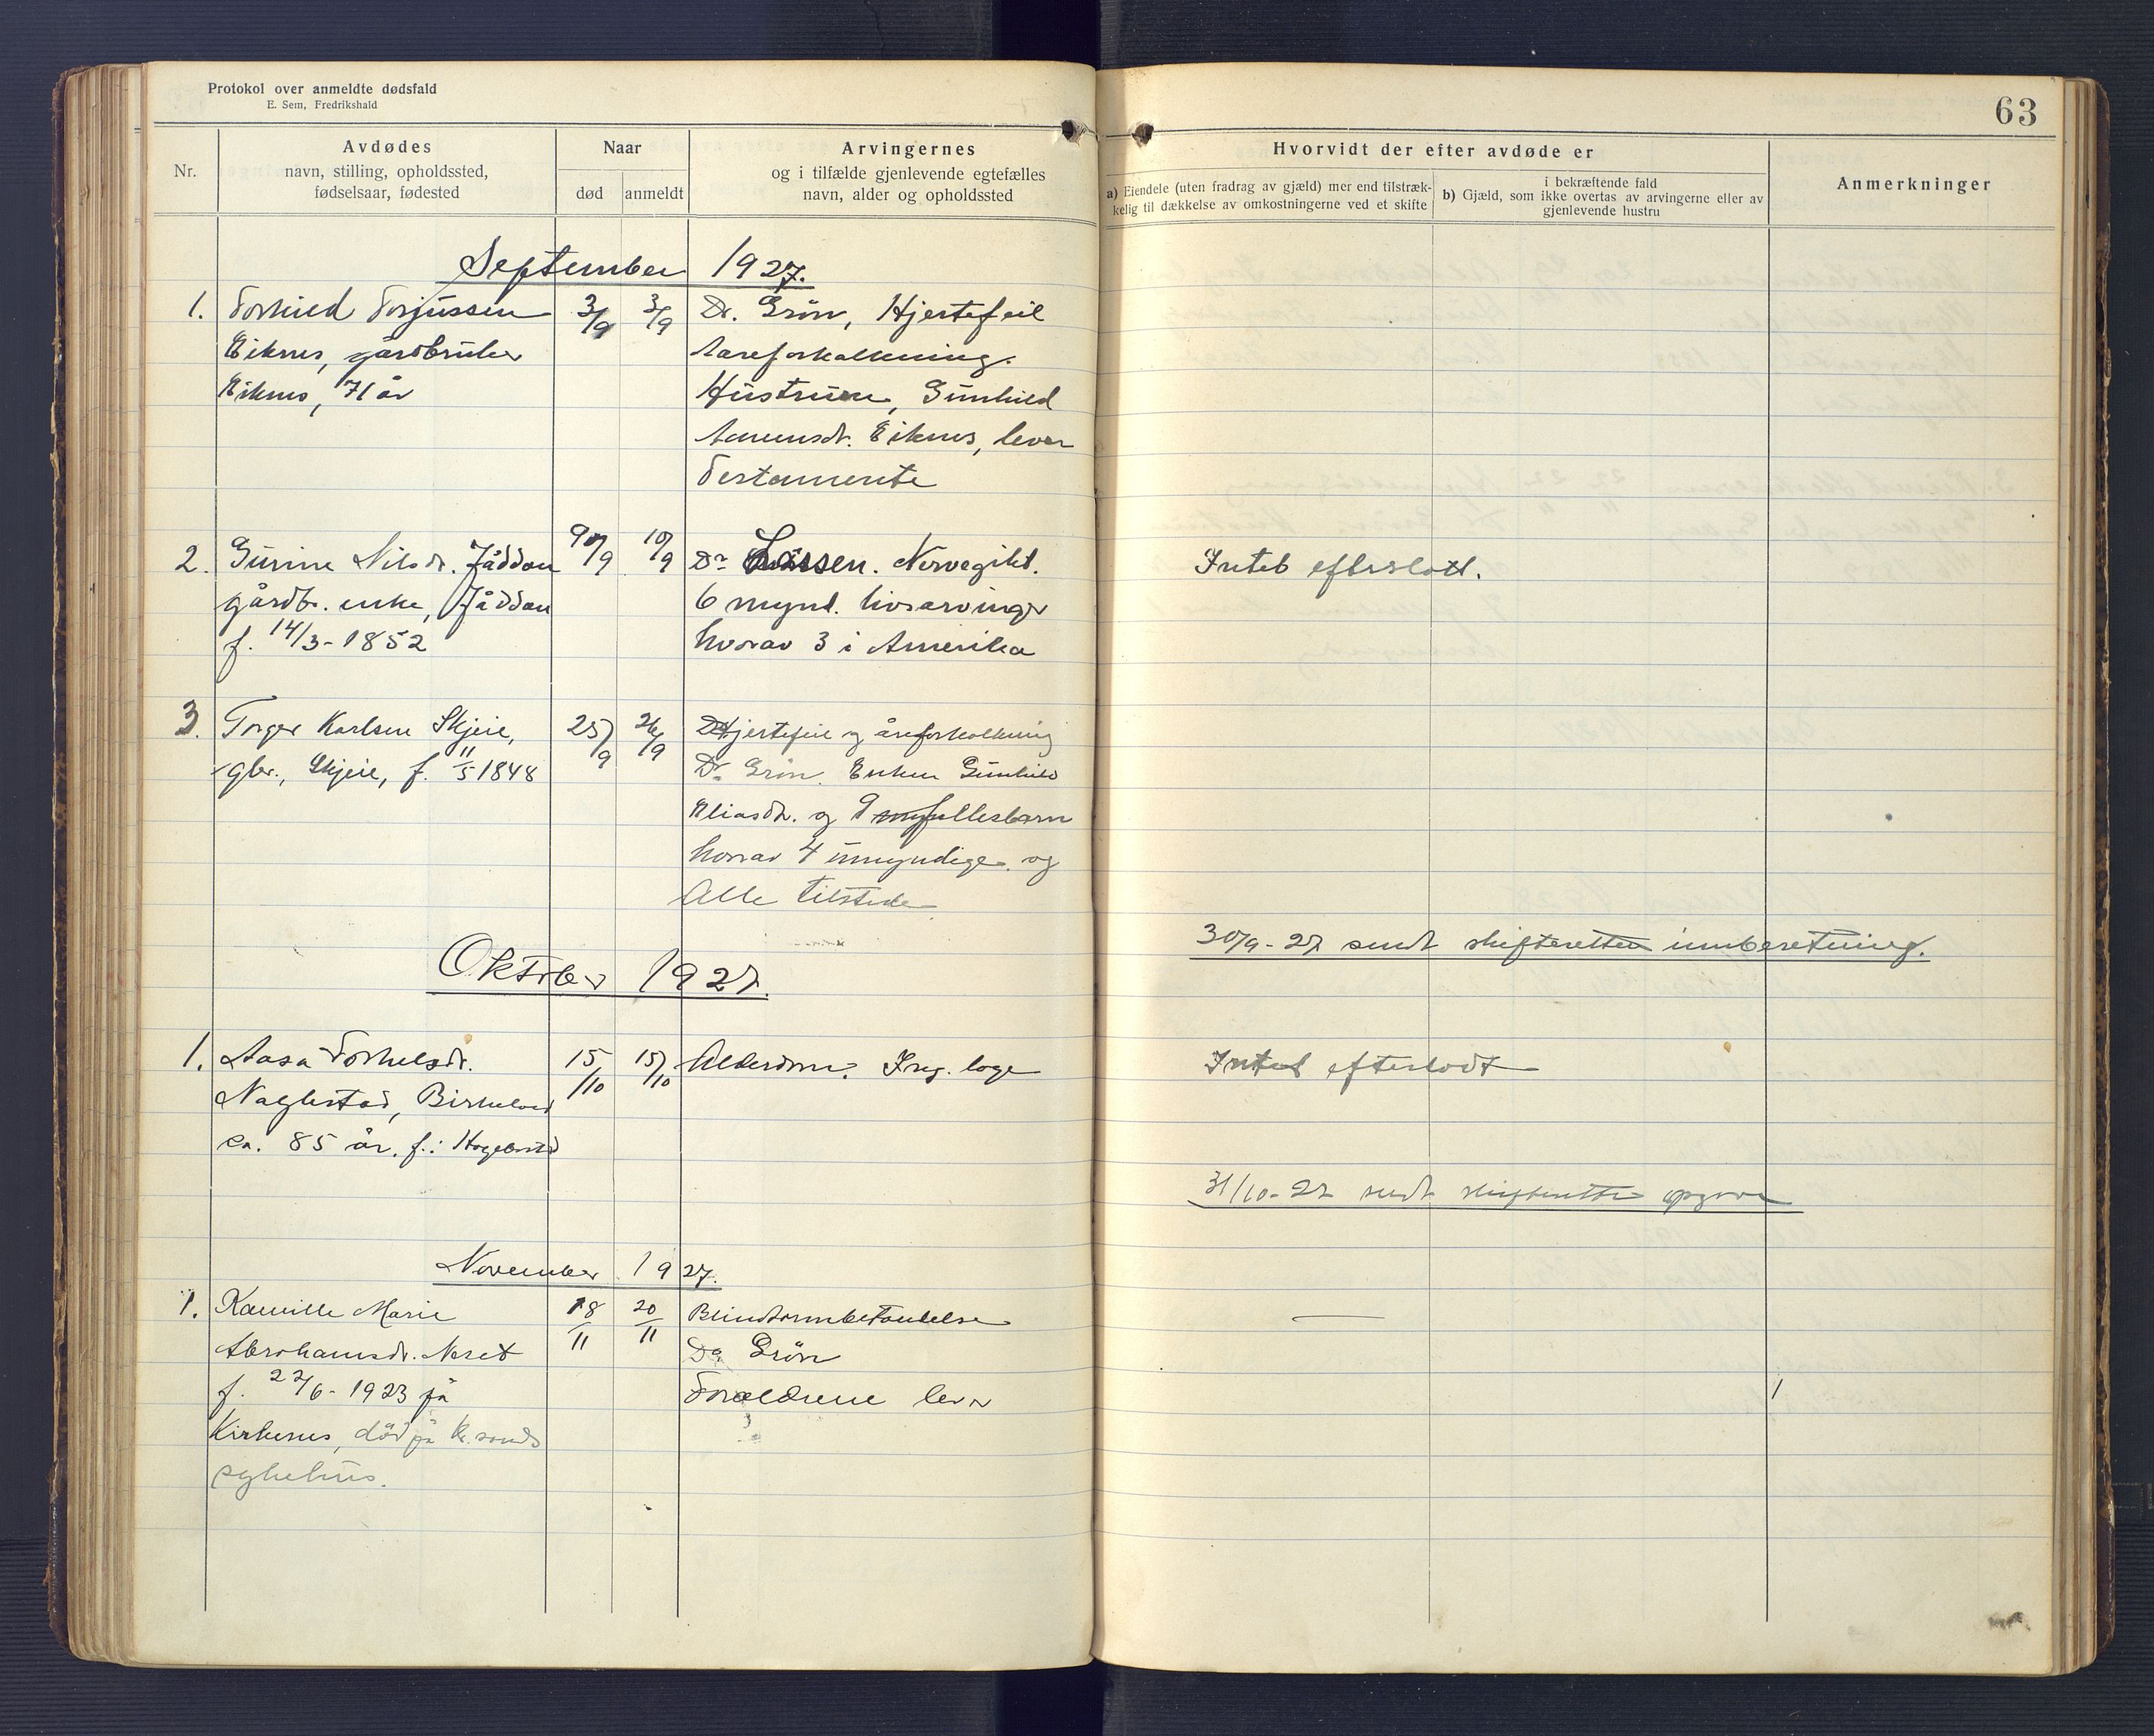 Protokol over anmeldte dødsfald
E. Sem, Fredrikshald
63
Nr.
Avdødes
navn, stilling, opholdssted,
fødselsaar, fødested
Naar
død
anmeldt
Arvingernes
og i tilfælde gjenlevende egtefælles
navn, alder og opholdssted
Hvorvidt der efter avdøde er
a) Eiendele (uten fradrag av gjæld) mer end tilstræk-
kelig til dækkelse av omkostningerne ved et skifte
i bekræftende fald
b) Gjæld, som ikke overtas av arvingerne eller av
gjenlevende hustru
Anmerkninger
September 1927.
1. Torkild Torjussen 3/9 3/9 Dr. Grön, Hjertefeil
Eiknes, gårdbruker aareforkalkning.
Eiknes, 71 år Hustruen, Gunhild
Aanensdr. Eiknes, lever
Testamente
2. Gurine Nilsdr. Jåddan 9/9 10/9 Dr Larsen. Nervegikt. Intet efterlatt.
gårdbr. enke, Jåddan 6 mynd. livsarvinger
f. 14/3-1852 hvorav 3 i Amerika
3. Torger Karlsen Skjeie, 25/9 26/9 Hjertefeil og åreforkalkning
gbr., Skjeie, f. 11/5 1848 Dr. Grön. Enken Gunhild
Eliasdr. og 9 fellesbarn
hvorav 4 umyndige. og
Alle tilstede
30/9-27 sendt skifteretten innberetning.
Oktober 1927.
1. Aasa Torkelsdr. 15/10 15/10 Alderdom. Ing. læge Intet efterladt
Naglestad, Birkeland
ca. 85 år. f. i Hægebostad
31/10-27 sendt skifteretten opgave
November 1927.
1. Kamille Marie 18/11 20/11 Blindtarmbetændelse —
Abrahamsdr. Neset Dr Grön
f. 22/6-1923 på Forældrene lever
Kirkenes, död på Kr.sands
sykehus.